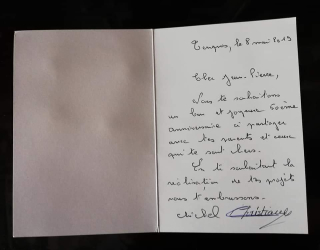 le 8 mai 2019
Cher Jean-Pierre,
Nous te souhaitons
un bon et joyeux 60ème
anniversaire à partager
avec tes parents et ceux
qui te sont chers.
En te souhaitant la
réalisation de tes projets
nous t'embrassons.
Michel Christiane